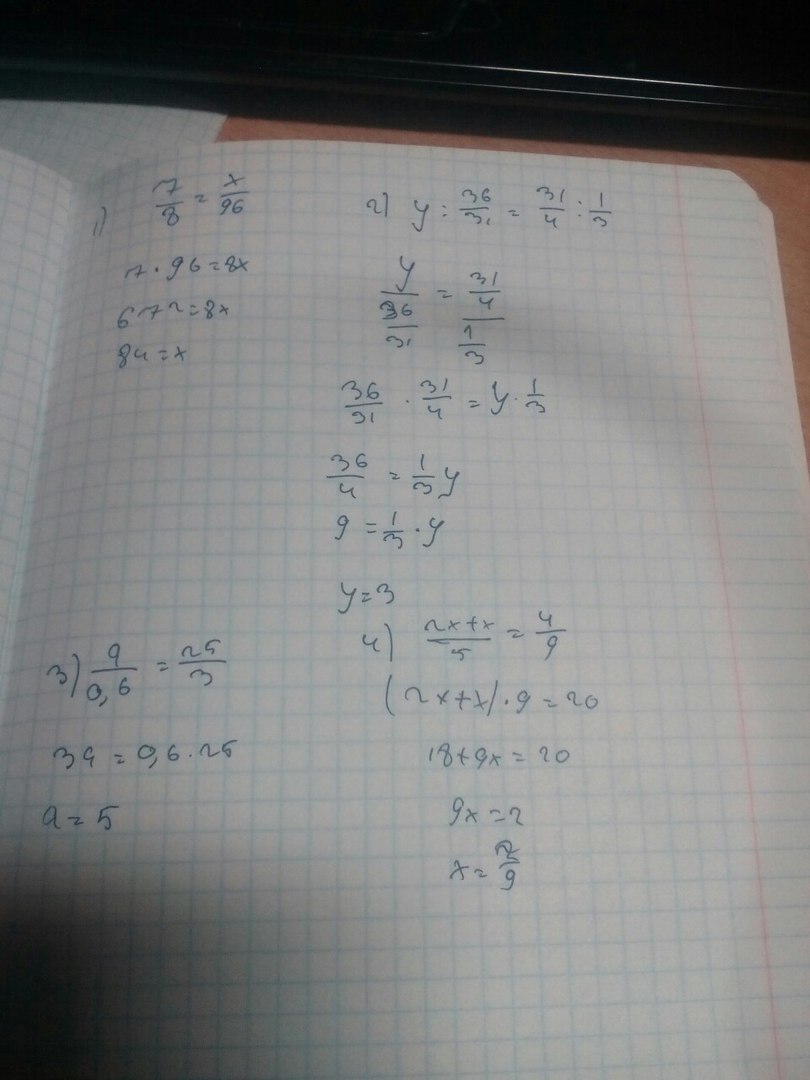 1) 7/8 = x/96
7 · 96 = 8x
672 = 8x
84 = x
2) y : 36/31 = 31/4 : 1/3
y/(36/31) = (31/4)/(1/3)
36/31 · 31/4 = y · 1/3
36/4 = 1/3 y
9 = 1/3 · y
y = 3
3) a/0,6 = 25/3
3a = 0,6 · 25
a = 5
4) (2x+x)/5 = 4/9
(2x+x) · 9 = 20
18+9x = 20
9x = 2
x = 2/9